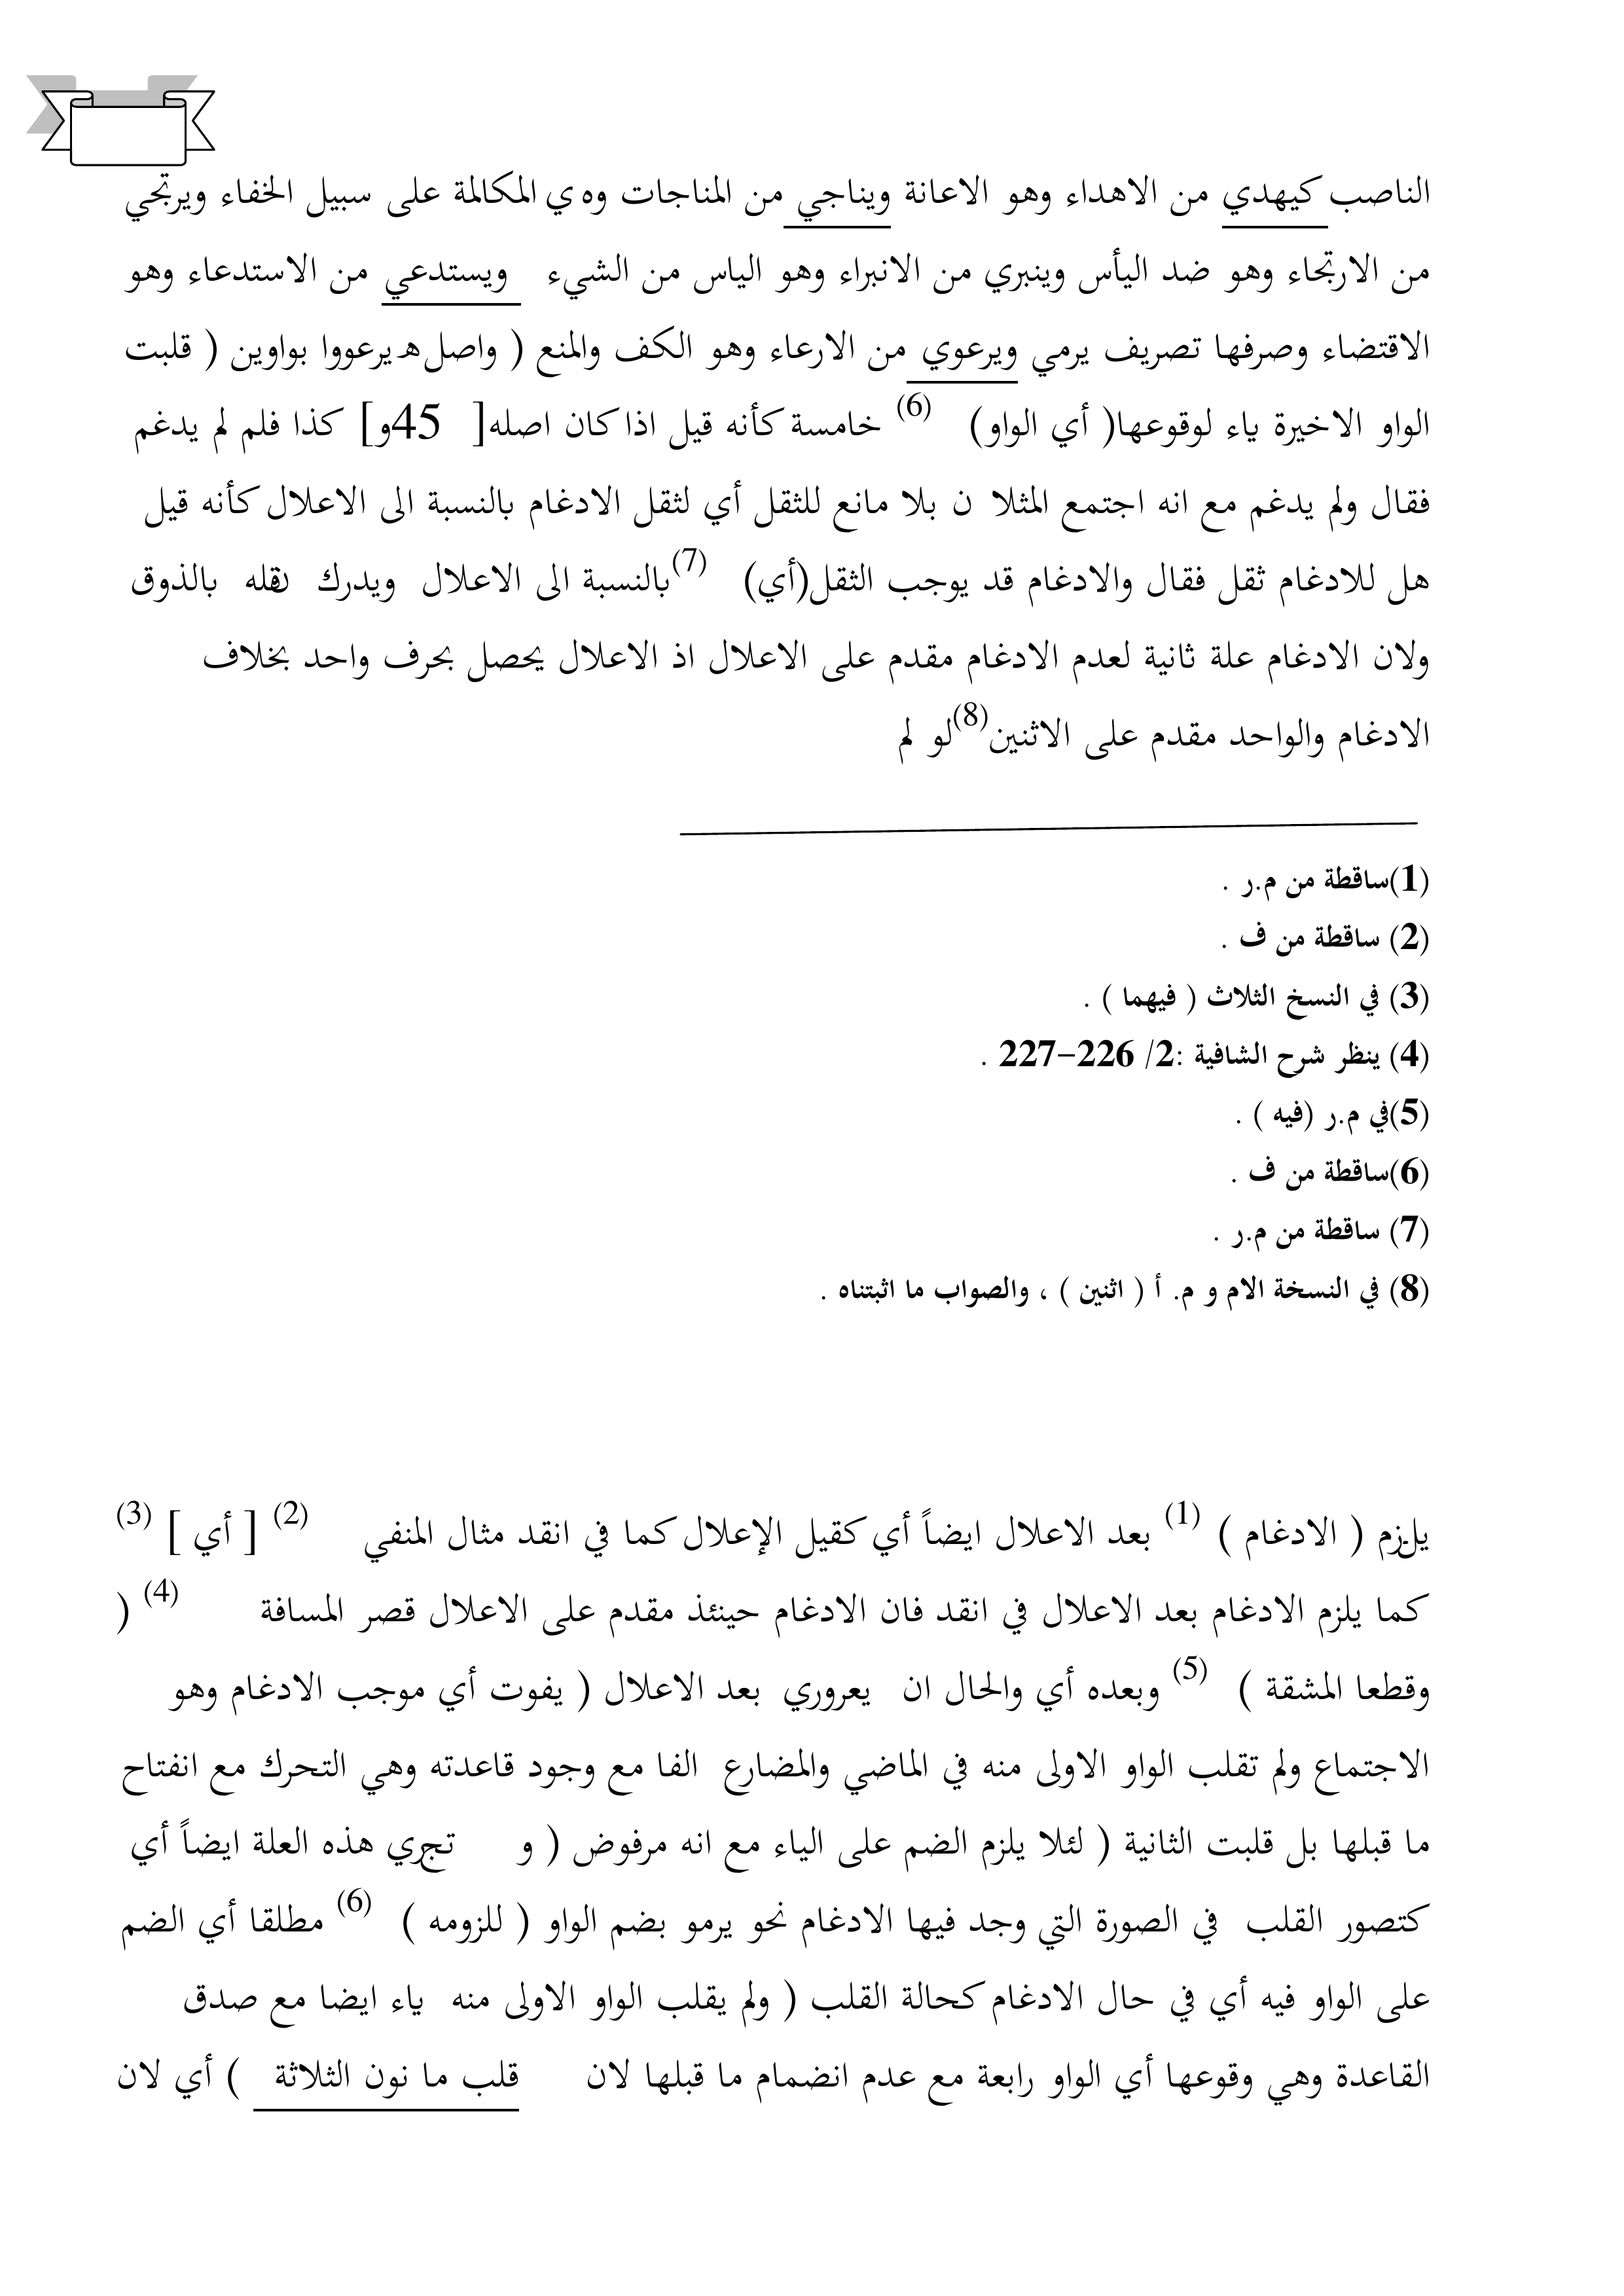 الناصب كيهدي من الاهداء وهو الاعانة ويناجي من المناجات وهي المكالمة على سبيل الخفاء ويرتجي
من الارتجاء وهو ضد اليأس وينبري من الانبراء وهو الياس من الشيء ويستدعي من الاستدعاء وهو
الاقتضاء وصرفها تصريف يرمي ويرعوي من الارعاء وهو الكف والمنع ( واصله يرعووا بواوين ( قلبت
الواو الاخيرة ياء لوقوعها( أي الواو) (6) خامسة كأنه قيل اذا كان اصله[ 45و] كذا فلم لم يدغم
فقال ولم يدغم مع انه اجتمع المثلا ن بلا مانع للثقل أي لثقل الادغام بالنسبة الى الاعلال كأنه قيل
هل للادغام ثقل فقال والادغام قد يوجب الثقل(أي) (7)بالنسبة الى الاعلال ويدرك ثقله بالذوق
ولان الادغام علة ثانية لعدم الادغام مقدم على الاعلال اذ الاعلال يحصل بحرف واحد بخلاف
الادغام والواحد مقدم على الاثنين(8)لو لم
(1)ساقطة من م.ر .
(2) ساقطة من ف .
(3) في النسخ الثلاث ( فيهما ) .
(4) ينظر شرح الشافية :2/ 226-227 .
(5)في م.ر (فيه ) .
(6)ساقطة من ف .
(7) ساقطة من م.ر .
(8) في النسخة الام و م. أ ( اثنين ) ، والصواب ما اثبتناه .
يلزم ( الادغام ) (1) بعد الاعلال ايضاً أي كقيل الإعلال كما في انقد مثال المنفي (2) [ أي ] (3)
كما يلزم الادغام بعد الاعلال في انقد فان الادغام حينئذ مقدم على الاعلال قصر المسافة (4) (
وقطعا المشقة ) (5) وبعده أي والحال ان يعروري بعد الاعلال ( يفوت أي موجب الادغام وهو
الاجتماع ولم تقلب الواو الاولى منه في الماضي والمضارع الفا مع وجود قاعدته وهي التحرك مع انفتاح
ما قبلها بل قلبت الثانية ( لئلا يلزم الضم على الياء مع انه مرفوض ( و تجري هذه العلة ايضاً أي
كتصور القلب في الصورة التي وجد فيها الادغام نحو يرمو بضم الواو ( للزومه ) (6) مطلقا أي الضم
على الواو فيه أي في حال الادغام كحالة القلب ( ولم يقلب الواو الاولى منه ياء ايضا مع صدق
القاعدة وهي وقوعها أي الواو رابعة مع عدم انضمام ما قبلها لان قلب ما نون الثلاثة ) أي لان